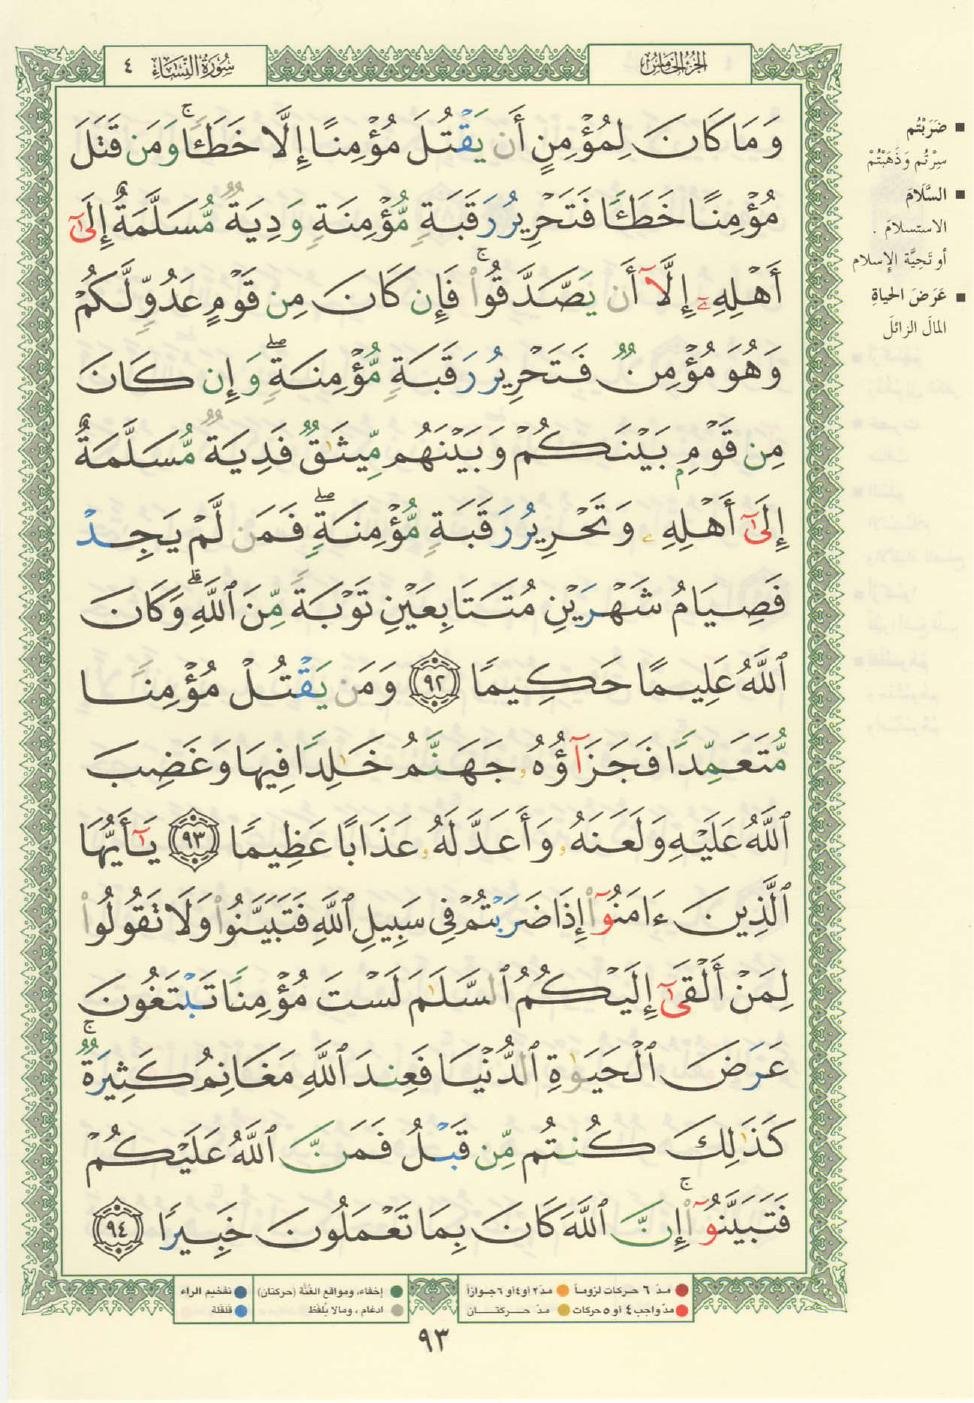 سُورَةُ النِّسَاءِ ٤
الجزء الخامس
وَمَا كَانَ لِمُؤْمِنٍ أَن يَقْتُلَ مُؤْمِنًا إِلَّا خَطَـًٔا ۚ وَمَن قَتَلَ
مُؤْمِنًا خَطَـًٔا فَتَحْرِيرُ رَقَبَةٍ مُّؤْمِنَةٍ وَدِيَةٌ مُّسَلَّمَةٌ إِلَىٰٓ
أَهْلِهِۦٓ إِلَّآ أَن يَصَّدَّقُوا۟ ۚ فَإِن كَانَ مِن قَوْمٍ عَدُوٍّ لَّكُمْ
وَهُوَ مُؤْمِنٌ فَتَحْرِيرُ رَقَبَةٍ مُّؤْمِنَةٍ ۖ وَإِن كَانَ
مِن قَوْمٍۭ بَيْنَكُمْ وَبَيْنَهُم مِّيثَـٰقٌ فَدِيَةٌ مُّسَلَّمَةٌ
إِلَىٰٓ أَهْلِهِۦ وَتَحْرِيرُ رَقَبَةٍ مُّؤْمِنَةٍ ۖ فَمَن لَّمْ يَجِدْ
فَصِيَامُ شَهْرَيْنِ مُتَتَابِعَيْنِ تَوْبَةً مِّنَ ٱللَّهِ ۗ وَكَانَ
ٱللَّهُ عَلِيمًا حَكِيمًا ٩٢ وَمَن يَقْتُلْ مُؤْمِنًا
مُّتَعَمِّدًا فَجَزَآؤُهُۥ جَهَنَّمُ خَـٰلِدًا فِيهَا وَغَضِبَ
ٱللَّهُ عَلَيْهِ وَلَعَنَهُۥ وَأَعَدَّ لَهُۥ عَذَابًا عَظِيمًا ٩٣ يَـٰٓأَيُّهَا
ٱلَّذِينَ ءَامَنُوٓا۟ إِذَا ضَرَبْتُمْ فِى سَبِيلِ ٱللَّهِ فَتَبَيَّنُوا۟ وَلَا تَقُولُوا۟
لِمَنْ أَلْقَىٰٓ إِلَيْكُمُ ٱلسَّلَـٰمَ لَسْتَ مُؤْمِنًا تَبْتَغُونَ
عَرَضَ ٱلْحَيَوٰةِ ٱلدُّنْيَا فَعِندَ ٱللَّهِ مَغَانِمُ كَثِيرَةٌ ۚ
كَذَٰلِكَ كُنتُم مِّن قَبْلُ فَمَنَّ ٱللَّهُ عَلَيْكُمْ
فَتَبَيَّنُوٓا۟ ۚ إِنَّ ٱللَّهَ كَانَ بِمَا تَعْمَلُونَ خَبِيرًا ٩٤
■ ضَرَبْتُم
سِرْتُم وَذَهَبْتُمْ
■ السَّلَامَ
الاستسلامَ .
أو تَحيَّة الإسلام
■ عَرَضَ الحياةِ
المالَ الزائلَ
مدّ ٦ حركات لزوماً ● مدّ ٢ أو ٤ أو ٦ جوازاً
مدّ واجب ٤ أو ٥ حركات ● مدّ حركتان
إخفاء، ومواقع الغُنَّة (حركتان) ● تفخيم الراء
ادغام ، ومالا يُلفَظ ● قلقلة
٩٣